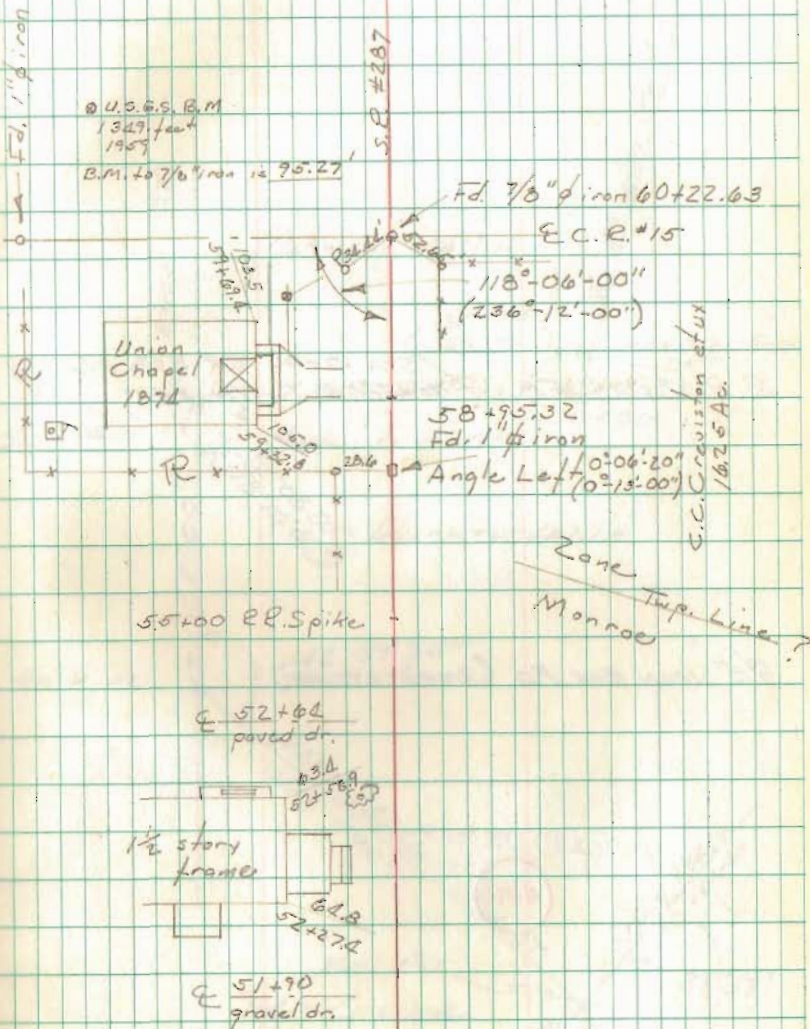 Fd. 1"ø iron
U.S.G.S. B.M
1349 feet
1959
B.M. to 7/8" iron is 95.27'
S.R. #287
Fd. 7/8"ø iron 60+22.63
℄ C.R. #15
52.65
118°-06'-00"
(236°-12'-00")
103.5
59+69.4
Union
Chapel
1874
R
105.0
59+32.8
R
28.6
58+95.32
Fd. 1"ø iron
Angle Left 0°-06'-20"
(0°-13'-00")
C.C. Creviston et ux
16.25 Ac.
Zane
Twp. Line ?
Monroe
55+00 RR. Spike
℄ 52+64
paved dr.
63.4
52+56.9
1½ story
frame
64.8
52+27.4
℄ 51+90
gravel dr.